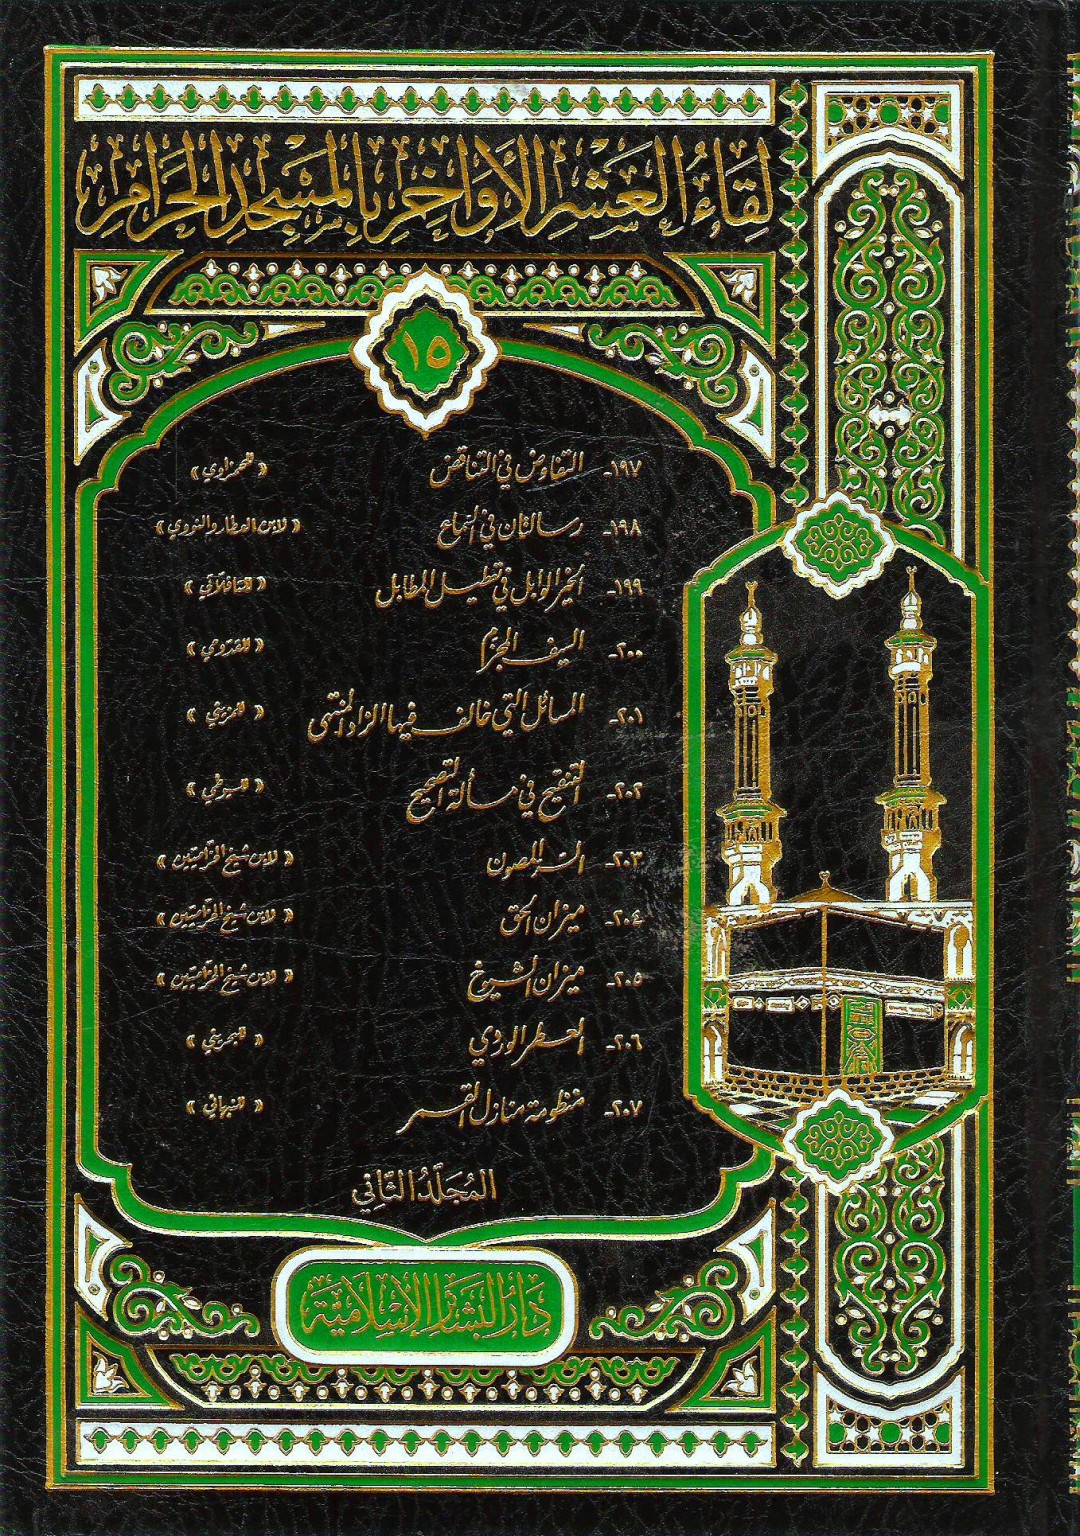 لِقَاءُ العَشْرِ الأَوَاخِرِ بِالمَسْجِدِ الحَرَامِ
١٥
١٩٧- التفاوض في التناقض « للحمزاوي »
١٩٨- رسالتان في السماع « لابن العطار والنووي »
١٩٩- الخير الوابل في « للتافلاتي »
٢٠٠- السيف
٢٠١- المسائل التي خالف فيها الزاد المنتهى
٢٠٢- التنقيح في مسألة التصحيح « للسيوطي »
٢٠٣- السر المصون « لابن شيخ الحزّاميّين »
٢٠٤- ميزان الحق « لابن شيخ الحزّاميّين »
٢٠٥- ميزان الشيوخ « لابن شيخ الحزّاميّين »
٢٠٦- العطر الوردي
٢٠٧- منظومة منازل القمر « للنبهاني »
المُجَلَّدُ الثَّانِي
دَارُ البَشَائِرِ الإِسْلَامِيَّة